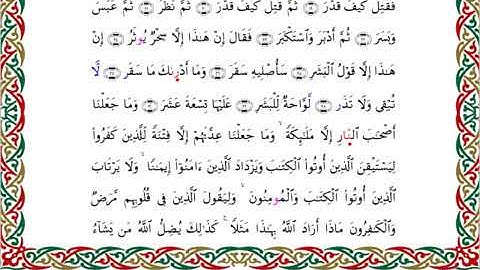 فَقُتِلَ كَيْفَ قَدَّرَ ۝ ثُمَّ قُتِلَ كَيْفَ قَدَّرَ ۝ ثُمَّ نَظَرَ ۝ ثُمَّ عَبَسَ
وَبَسَرَ ۝ ثُمَّ أَدْبَرَ وَاسْتَكْبَرَ ۝ فَقَالَ إِنْ هَٰذَا إِلَّا سِحْرٌ يُوثَرُ ۝ إِنْ
هَٰذَا إِلَّا قَوْلُ الْبَشَرِ ۝ سَأُصْلِيهِ سَقَرَ ۝ وَمَا أَدْرَىٰكَ مَا سَقَرُ ۝ لَا
تُبْقِي وَلَا تَذَرُ ۝ لَوَّاحَةٌ لِّلْبَشَرِ ۝ عَلَيْهَا تِسْعَةَ عَشَرَ ۝ وَمَا جَعَلْنَا
أَصْحَٰبَ النَّارِ إِلَّا مَلَٰئِكَةً ۙ وَمَا جَعَلْنَا عِدَّتَهُمْ إِلَّا فِتْنَةً لِّلَّذِينَ كَفَرُوا
لِيَسْتَيْقِنَ الَّذِينَ أُوتُوا الْكِتَٰبَ وَيَزْدَادَ الَّذِينَ ءَامَنُوا إِيمَٰنًا ۙ وَلَا يَرْتَابَ
الَّذِينَ أُوتُوا الْكِتَٰبَ وَالْمُومِنُونَ ۙ وَلِيَقُولَ الَّذِينَ فِي قُلُوبِهِم مَّرَضٌ
وَالْكَٰفِرُونَ مَاذَا أَرَادَ اللَّهُ بِهَٰذَا مَثَلًا ۚ كَذَٰلِكَ يُضِلُّ اللَّهُ مَن يَشَاءُ